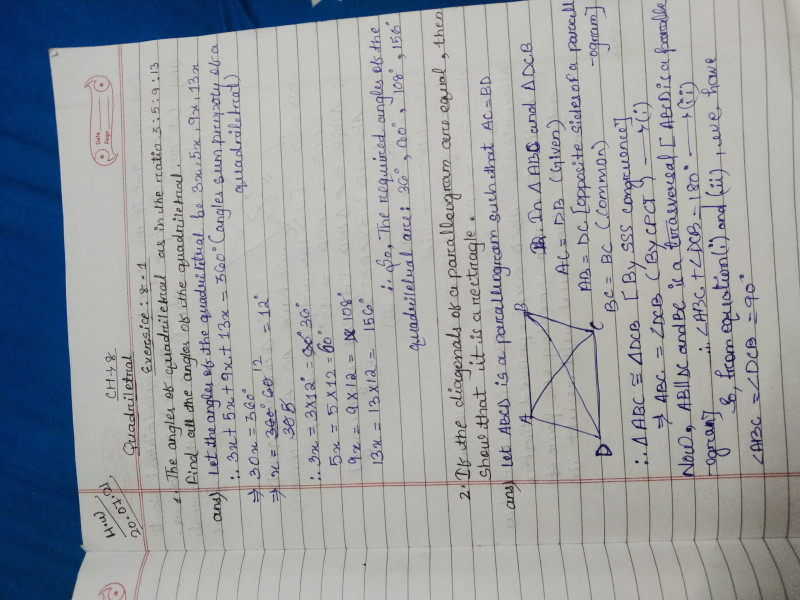 Date
Page
H.W
20.07.21
CH→8
Quadriletral
Exercise : 8.1
1. The angles of quadriletral as in the ratio 3:5:9:13
find all the angles of the quadriletral.
ans) let the angles of the quadriletral be 3x, 5x, 9x, 13x
∴ 3x + 5x + 9x + 13x = 360° (angles sum property of a
quadriletral)
⇒ 30x = 360°
⇒ x = 360° 12 = 12°
30
∴ 3x = 3x12° = 36°
5x = 5 X 12 = 60°
9x = 9 X 12 = 108°
13x = 13X12 = 156°
∴ So, The required angles of the
quadriletral are: 36°, 60°, 108°, 156°
2. If the diagonals of a parallelogram are equal, then
show that it is a rectragle.
ans) let ABCD is a parallelogram such that AC = BD
A B C D
In Δ ABC and Δ DCB
AC = DB (Given)
AB = DC [opposite sides of a parall
-ogram]
BC = BC (common)
∴ Δ ABC ≅ Δ DCB [By SSS congruence]
⇒ ABC = ∠DCB (By CPCT) → (i)
Now, AB||DC and BC is a [ABCD is a paralle
ogram]
∴ ∠ABC + ∠DCB = 180° → (ii)
So, from equation (i) and (ii), we have
∠ABC = ∠DCB = 90°